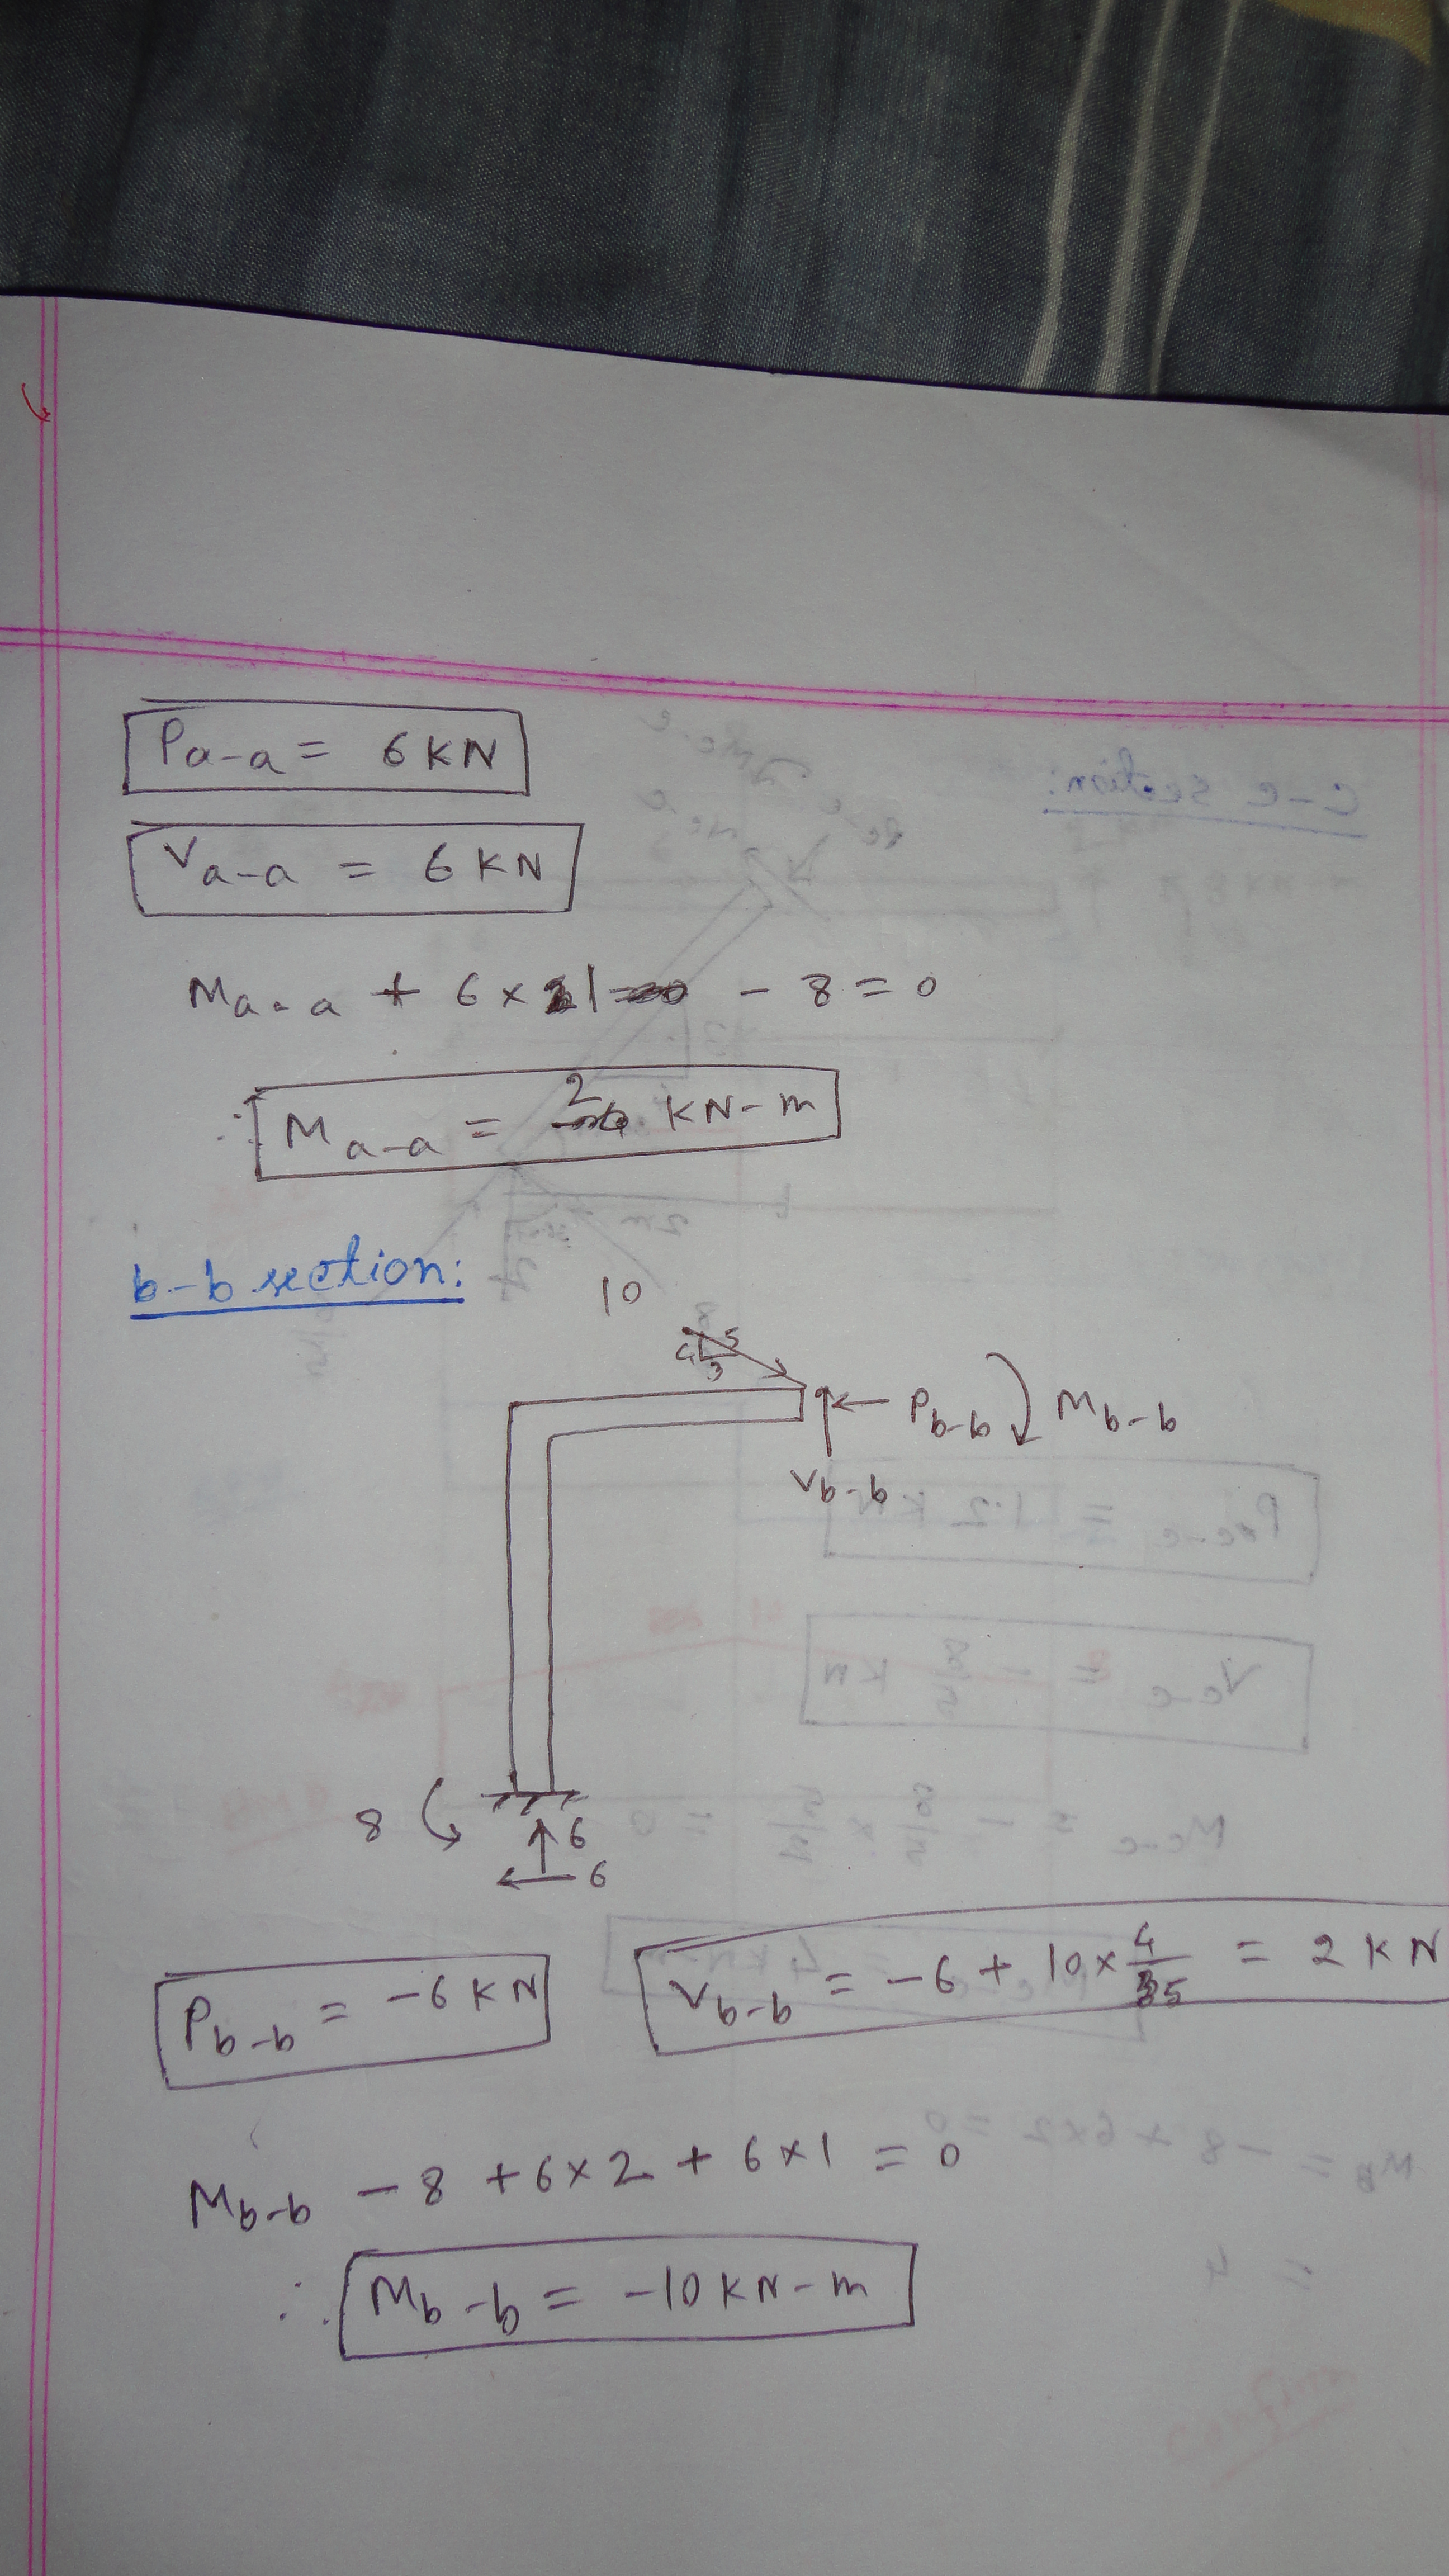 Pa-a = 6 KN
Va-a = 6 KN
Ma-a + 6 × 1 - 8 = 0
∴ Ma-a = 2 KN-m
b-b section:
10
4 5
3
Pb-b Mb-b
Vb-b
8 6
6
Pb-b = -6 KN Vb-b = -6 + 10 × 4/5 = 2 KN
Mb-b - 8 + 6 × 2 + 6 × 1 = 0
∴ Mb-b = -10 KN-m